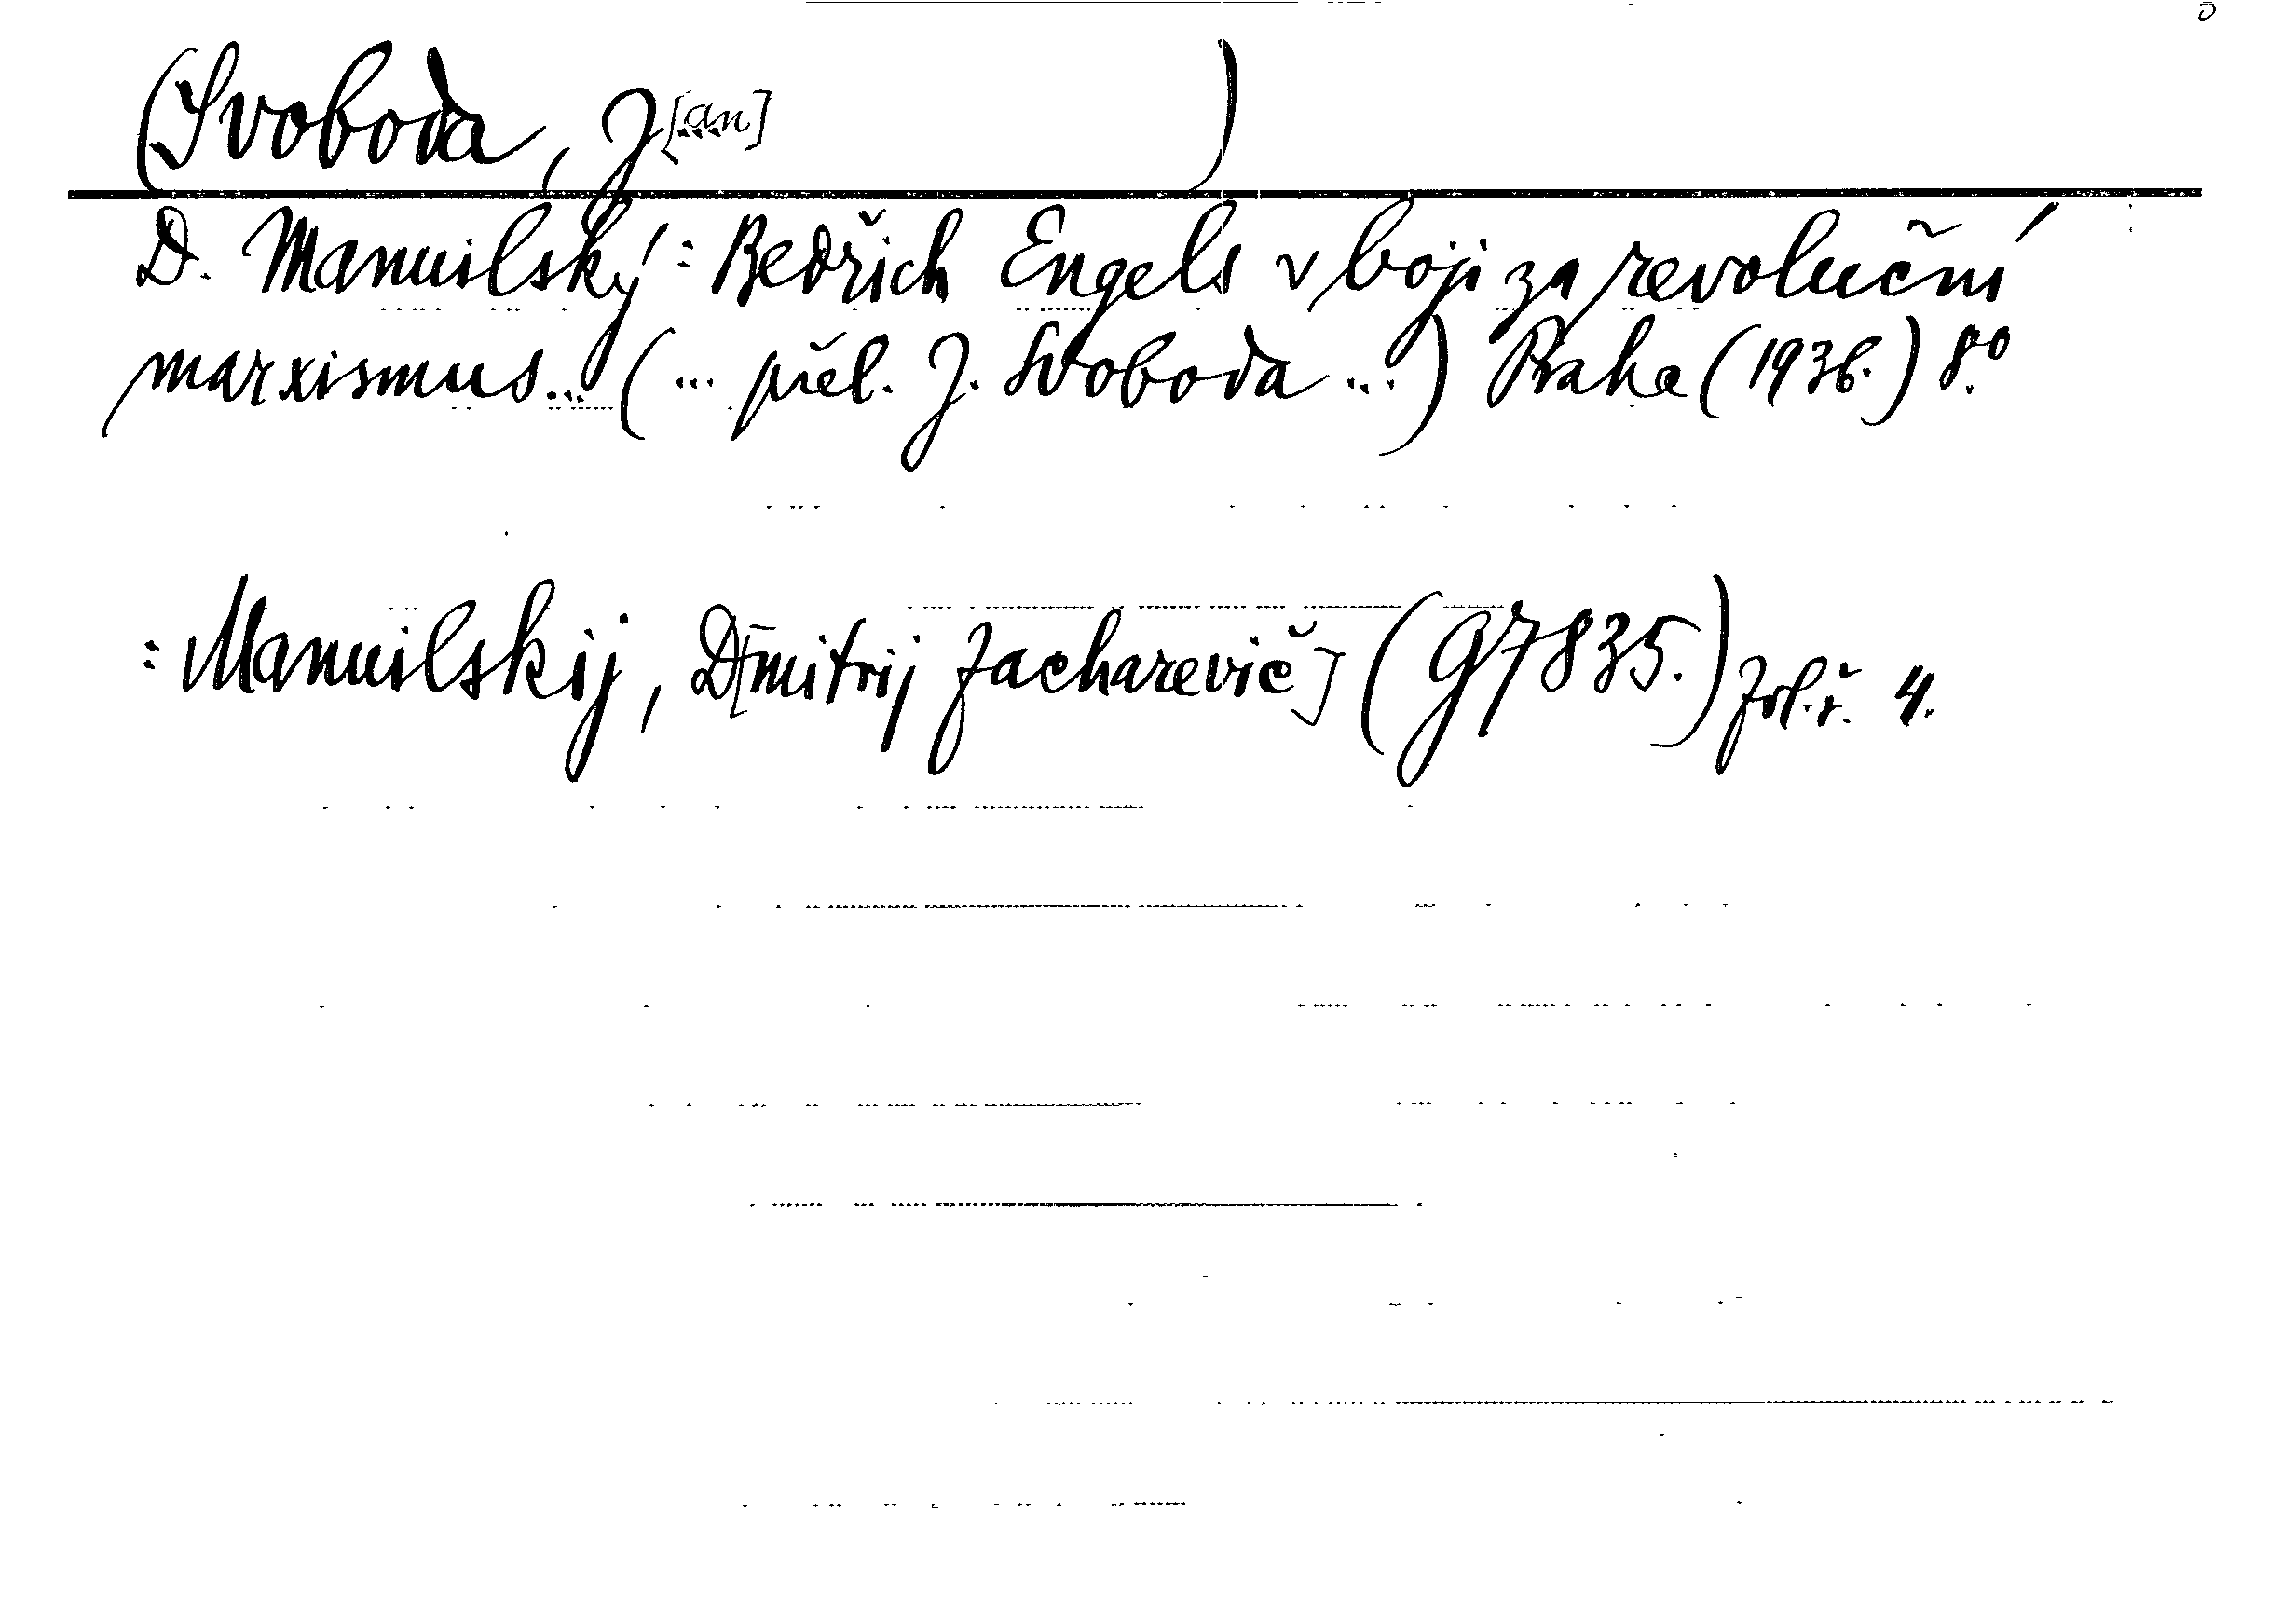 (Svoboda, J[an] )
D. Manuilský: Bedřich Engels v boji za revoluční
marxismus... (... přel. J. Svoboda ...) Praha (1936.) 8.º
: Manuilskij, D[mitrij Zacharevič] (G 7835.) Zvl. ř. 4.